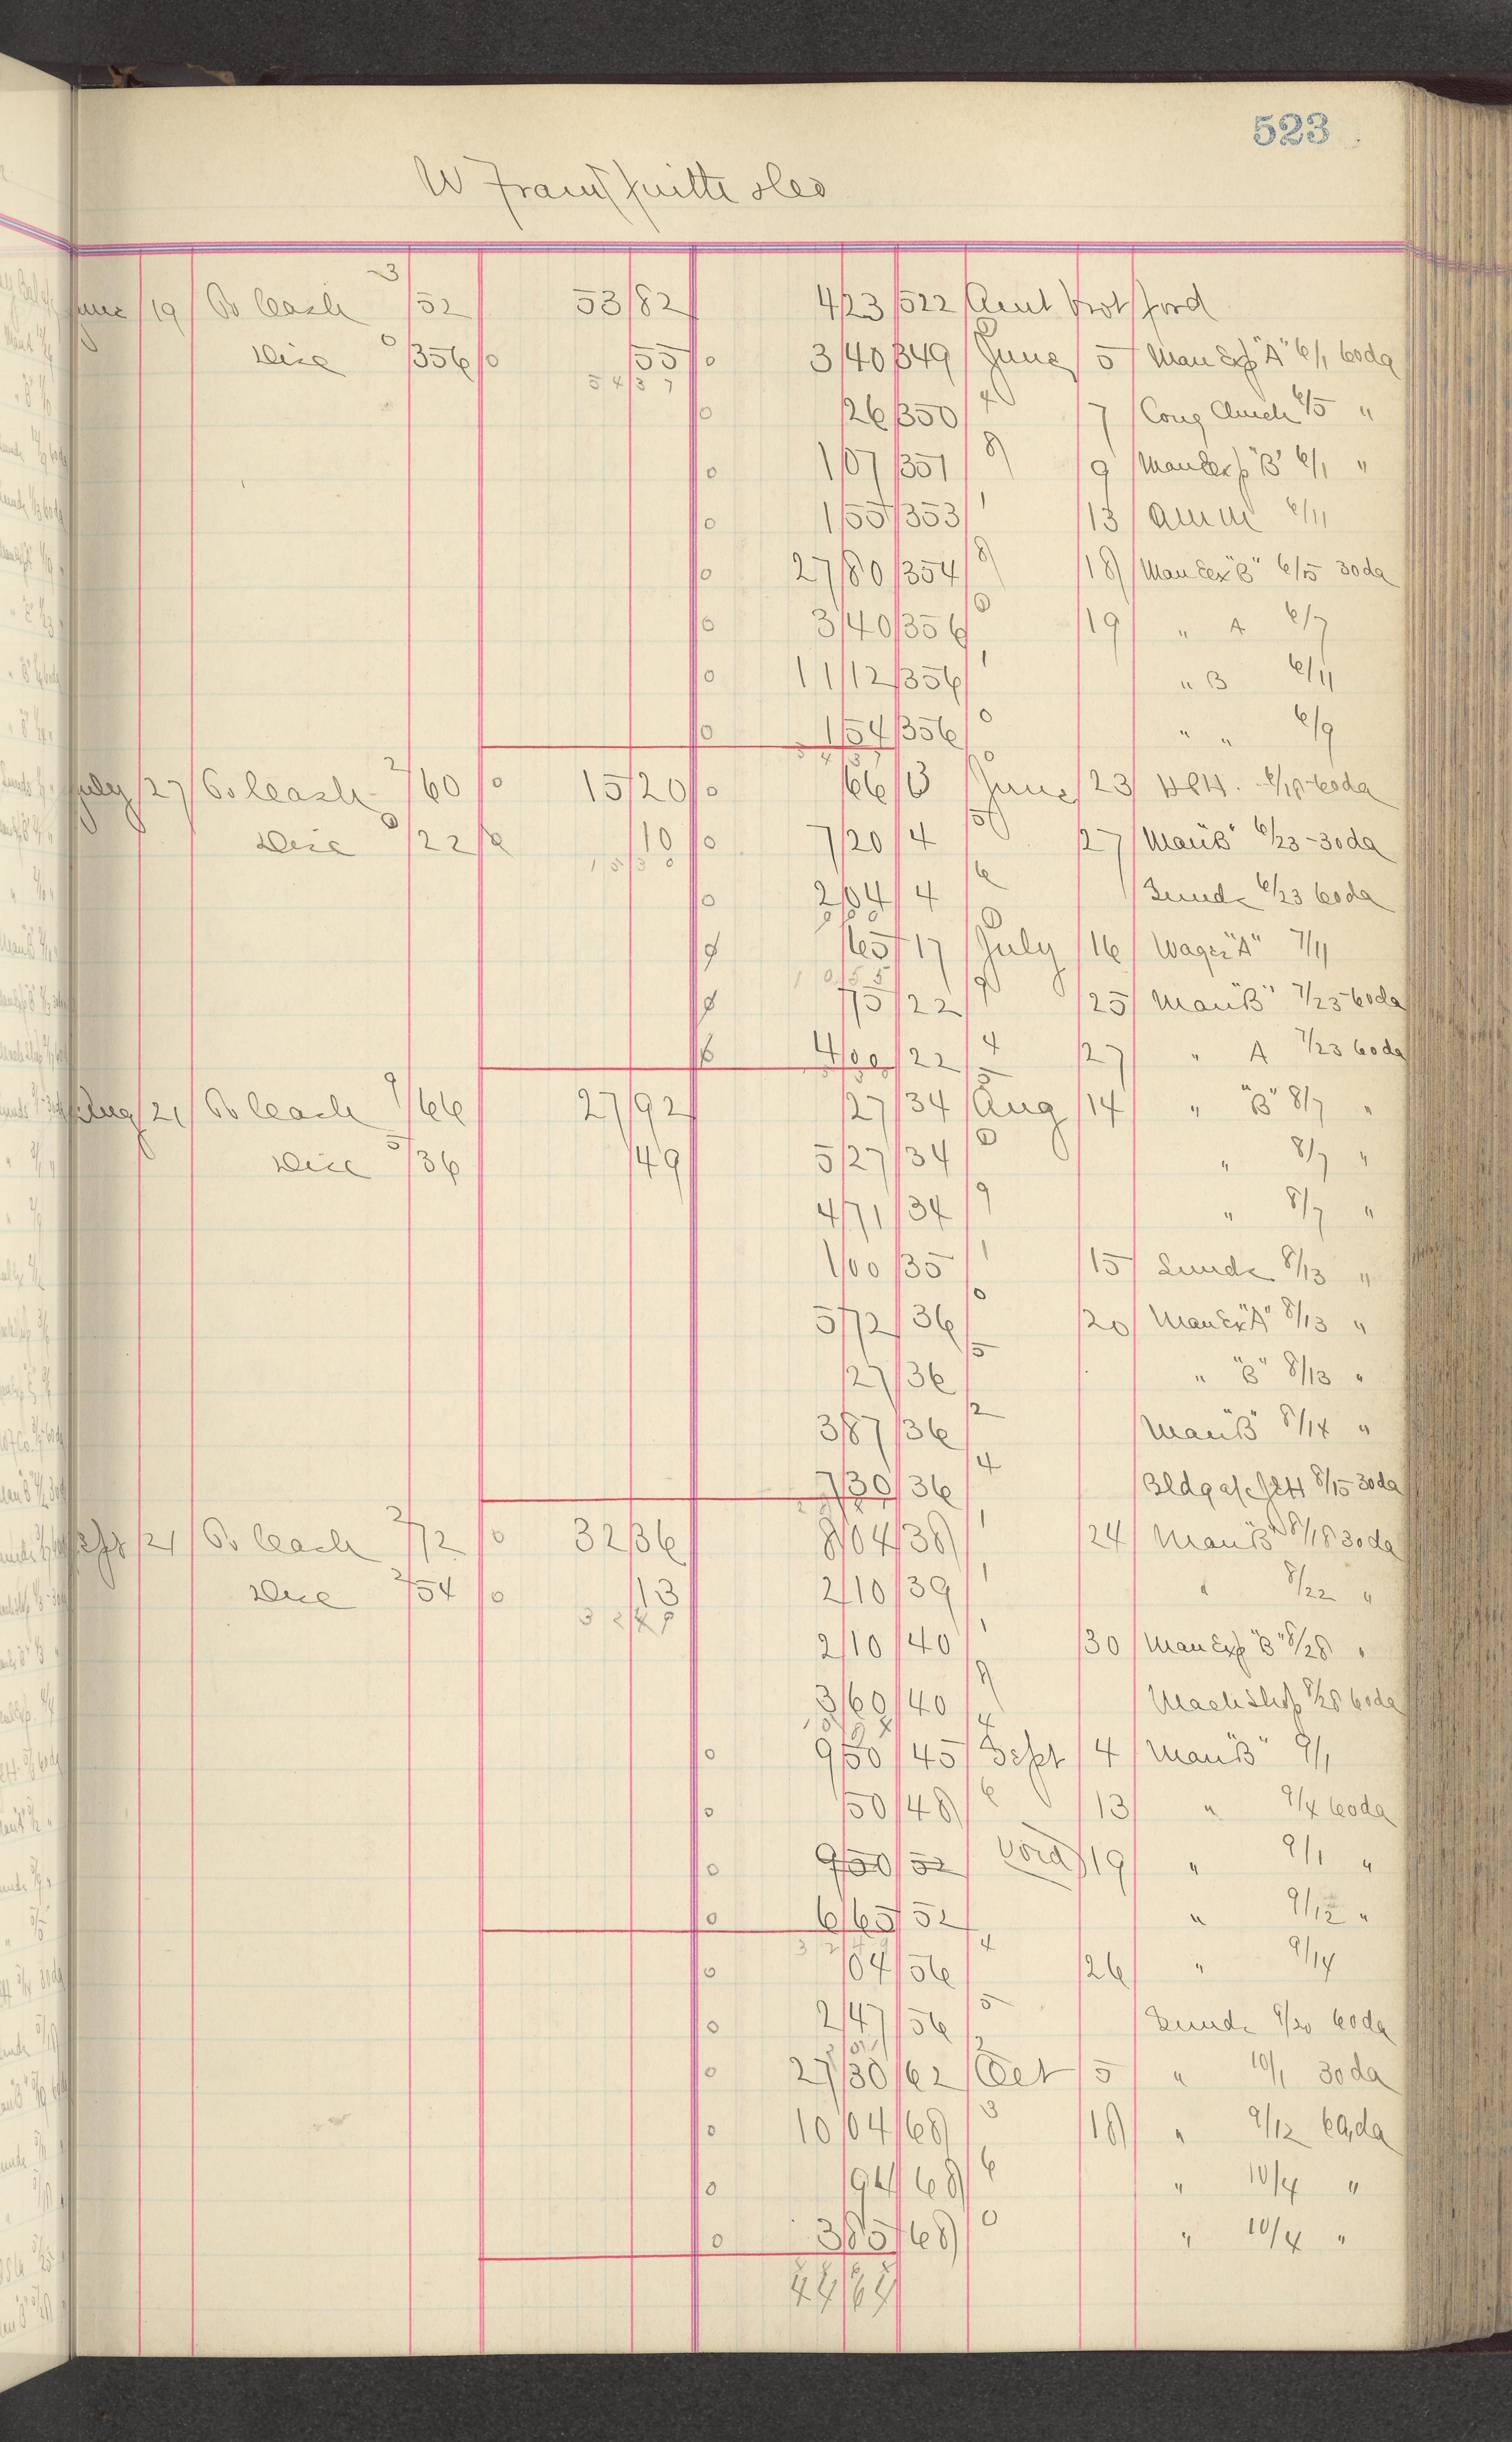 523
W
June 19 To Cash 3/52 53 82 4 23 522 Amt brot ford
Disc 0/356 0 55 0 3 40 349 June 0 5 Man Exp "A" 6/1 60da
54 37
0 26 350 4 7 Cong Church 6/5 "
0 1 07 351 8 9 Man Exp "B" 6/1 "
0 1 55 353 1 13 6/11
0 27 80 354 8 18 Man Ex "B" 6/15 30da
0 3 40 356 0 19 " A 6/7
0 11 12 356 1 " B 6/11
0 1 54 356 0 " " 6/9
54 37
July 27 To Cash 2/60 0 15 20 0 66 13 June 0 23 6/18 - 60da
Disc 0/22 0 10 0 7 20 4 5 27 Man "B" 6/23 - 30da
15 30
0 2 04 4 6 Sunds 6/23 60da
0 65 17 July 0 16 Wages "A" 7/11
10 55
0 75 22 9 25 Man "B" 7/23 - 60da
0 4 00 22 4 27 " A 7/23 60da
Aug 21 To Cash 9/66 27 92 27 34 Aug 5 14 " "B" 8/7 "
Disc 5/36 49 5 27 34 0 " 8/7 "
4 71 34 9 " 8/7 "
1 00 35 1 15 Sunds 8/13 "
5 72 36 0 20 Man Ex "A" 8/13 "
27 36 5 " "B" 8/13 "
3 87 36 2 Man "B" 8/14 "
7 30 36 4 Bldg a/c 8/15 30da
Sept 21 To Cash 2/72 0 32 36 8 04 38 1 24 Man "B" 8/18 30da
Disc 2/54 0 13 2 10 39 1 " 8/22 "
32 49
2 10 40 1 30 Man Exp "B" 8/28 "
3 60 40 8 Mach Shop 8/28 60da
0 9 50 45 Sept 4 4 Man "B" 9/1
0 50 48 6 13 " 9/4 60da
0 9 50 52 Void 19 " 9/1 "
0 6 65 52 " 9/12 "
32 49
0 04 56 4 26 " 9/14
0 2 47 56 5 Sunds 9/20 60da
0 27 30 62 Oct 2 5 " 10/1 30da
0 10 04 68 3 18 " 9/12 60da
0 94 68 6 " 10/4 "
0 3 85 68 0 " 10/4 "
44 64